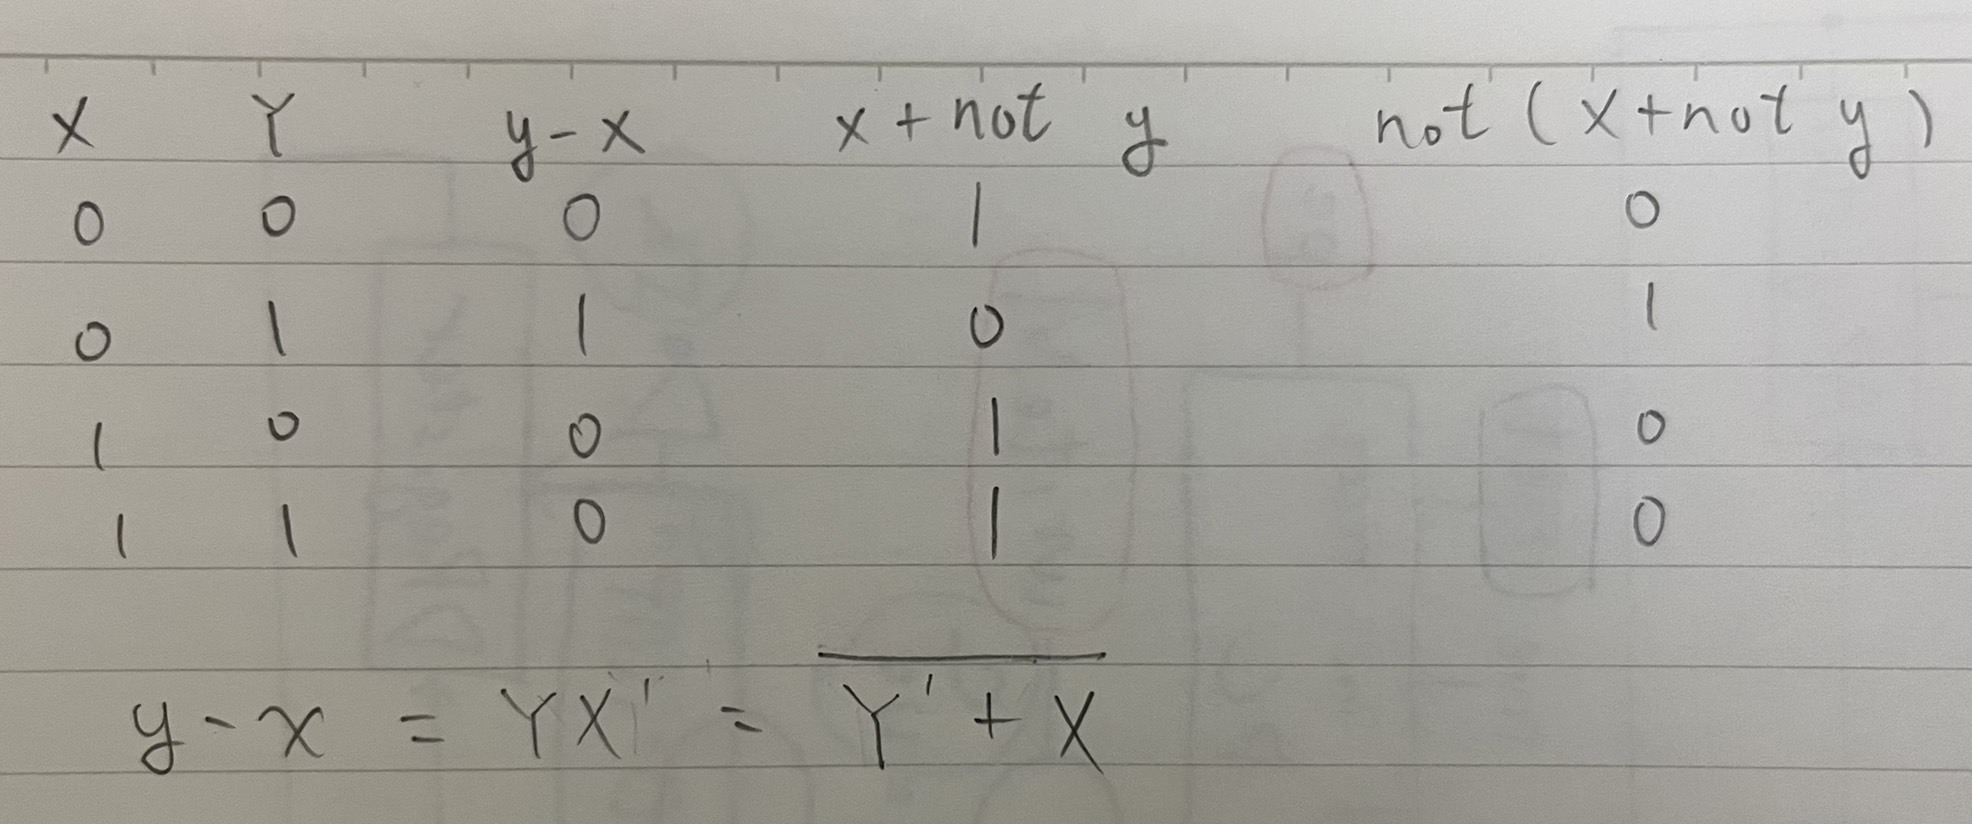 X Y y-x x+not y not (x+not y)
0 0 0 1 0
0 1 1 0 1
1 0 0 1 0
1 1 0 1 0
y-x = YX' = \overline{Y'+X}